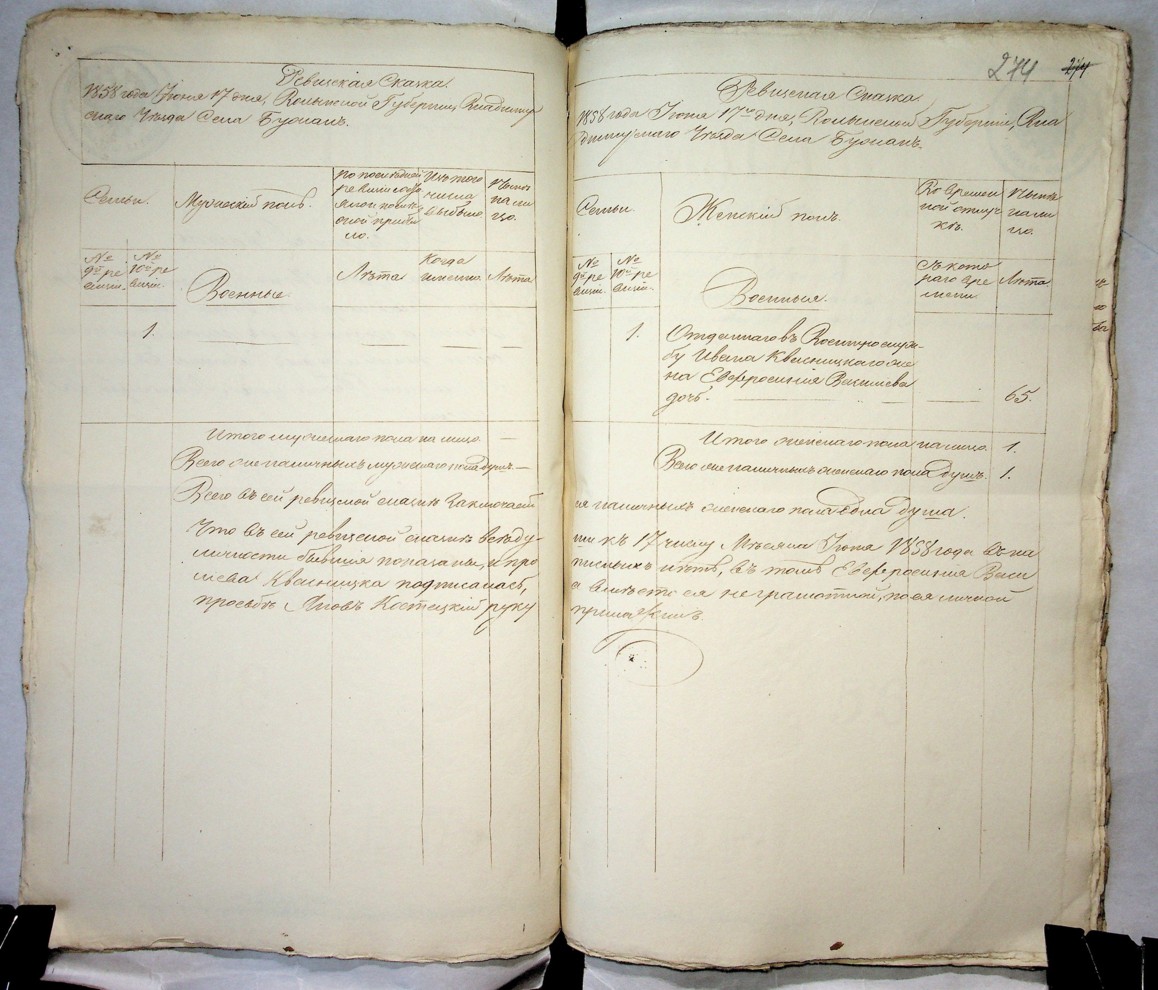 Ревизская Сказка
1858 года Июня 17 дня, Волынской Губернии, Владимир
скаго Уезда Села Бужанъ.
Семьи.
Мужеский полъ.
По последней
ревизии состо
яло и после
оной прибы
ло.
Изъ того
числа
выбыло
Ныне
на ли
цо.
№
9й ре
визiи.
№
10й ре
визiи.
Военные.
Лѣта
Когда
именно.
Лѣта
1.
Итого мужескаго пола на лицо —
Всего же наличныхъ мужескаго пола душъ —
Всего въ сей ревизской сказкѣ заключает
Что въ сей ревизской сказкѣ всѣ ду-
личности бывшія показаны, и про
лиева Квасницка подписалась,
просьбѣ Яковъ Костецкий руку
274
274
Ревизская Сказка
1858 года Июня 17го дня, Волынской Губерніи, Вла
димирскаго Уѣзда Села Бужанъ.
Семьи.
Женскій полъ.
Во времен
ной отлуч
кѣ.
Нынѣ
на ли
цо.
№
9й ре
визіи.
№
10й ре
визіи.
Военныя.
Съ кото
раго вре
мени
Лѣта
1.
Отданнаго въ Военную служ-
бу Ивана Квасницкаго же
на Евфросинія Васильева
дочь. — 65.
Итого женскаго пола на лицо 1.
Всего же наличныхъ женскаго пола душъ 1.
ся наличныхъ женскаго пола одна душа.
ши къ 17 числу Мѣсяца Июня 1858 года въ на
писныхъ нѣтъ, въ томъ Евфросинія Васи
а вмѣсто ея не грамотной, по ея личной
приложилъ.